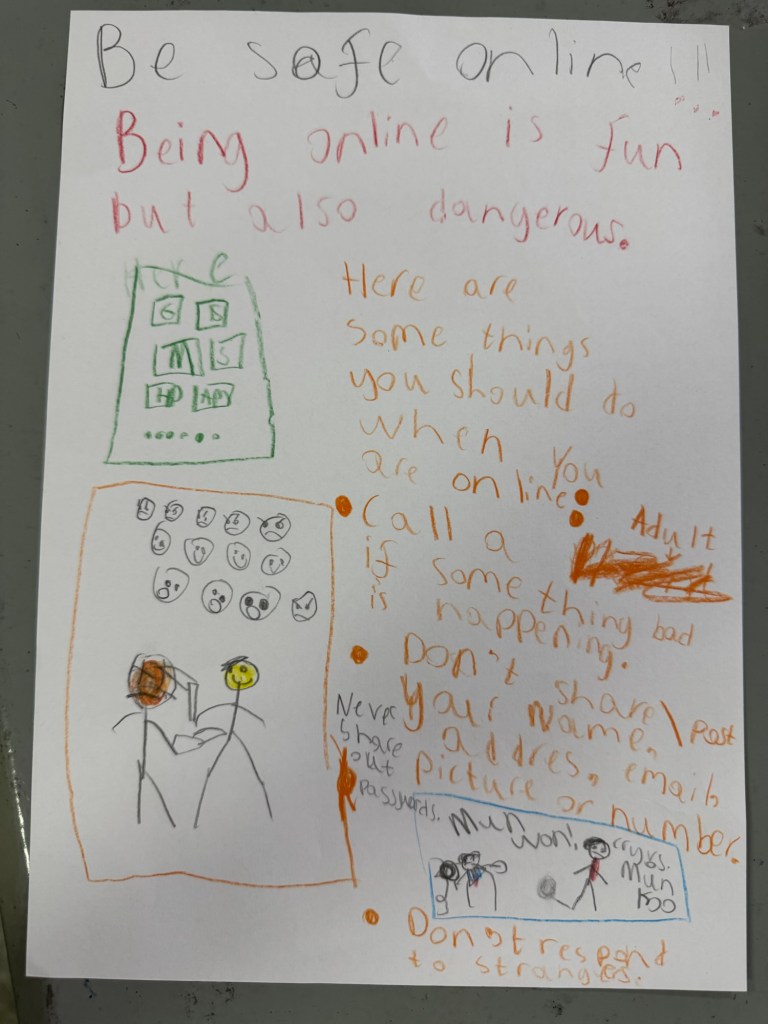 Be safe online!!!
Being online is fun
but also dangerous.
HERE
G B
M S
HP APP
Here are
some things
you should do
when you
are on line:
Call a Adult
if some thing bad
is happening.
Don't share\Post
your name,
addres, email,
picture or number.
Never
share
out
passwords.
Mun won!
Mun
Don't respond
to strangers.